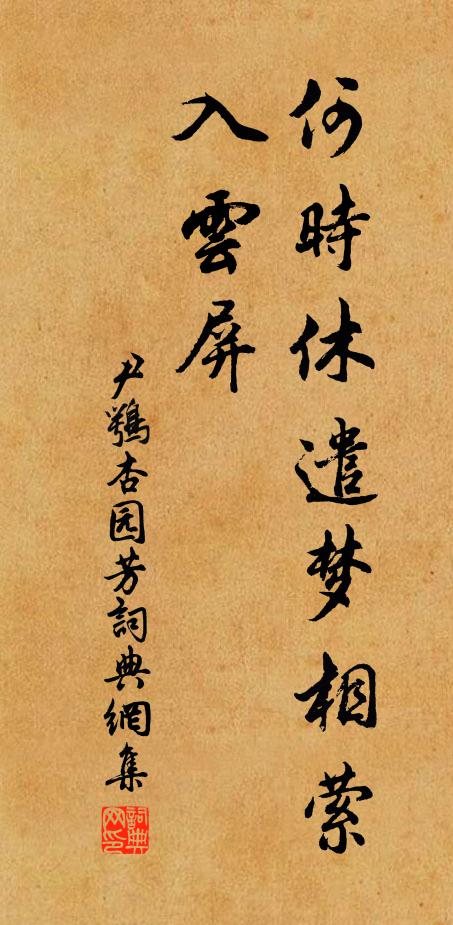 何時休遣梦相萦
入雲屏
尹鶚杏园芳詞典網集
詞典
网印